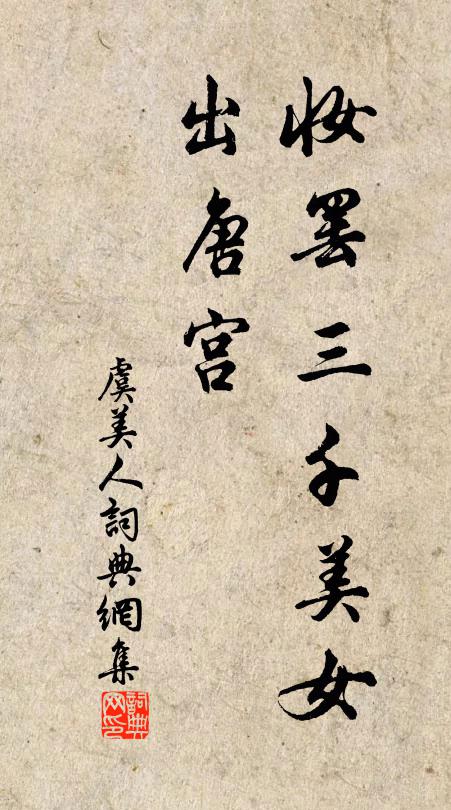 妝罷三千美女
出唐宮
虞美人詞典網集
詞典
网印